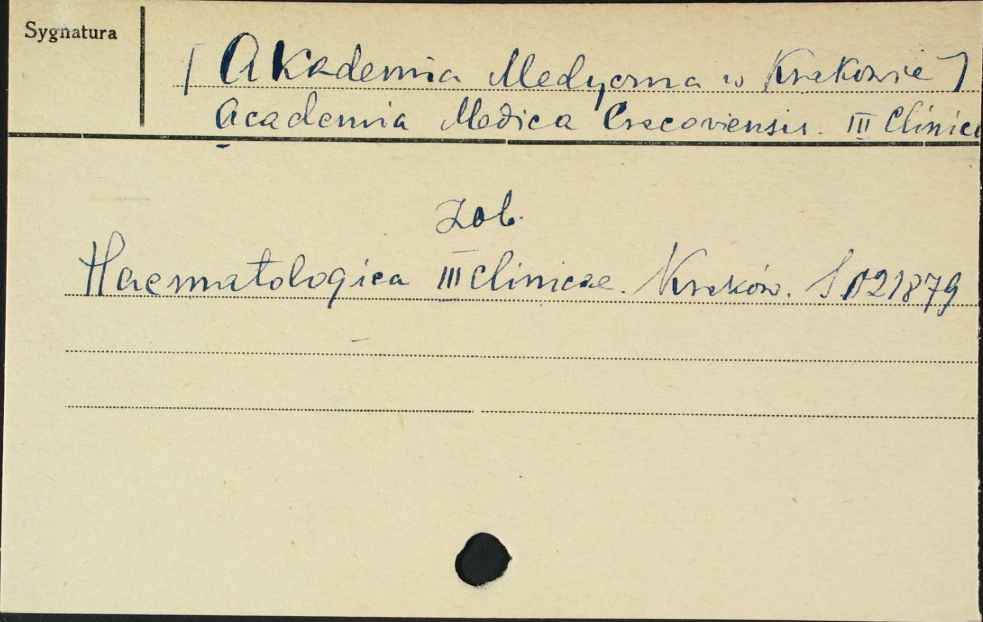 Sygnatura
[Akademia Medyczna w Krakowie]
Academia Medica Cracoviensis. III Clinica
zob.
Haematologica III Clinicae. Kraków. S 021879